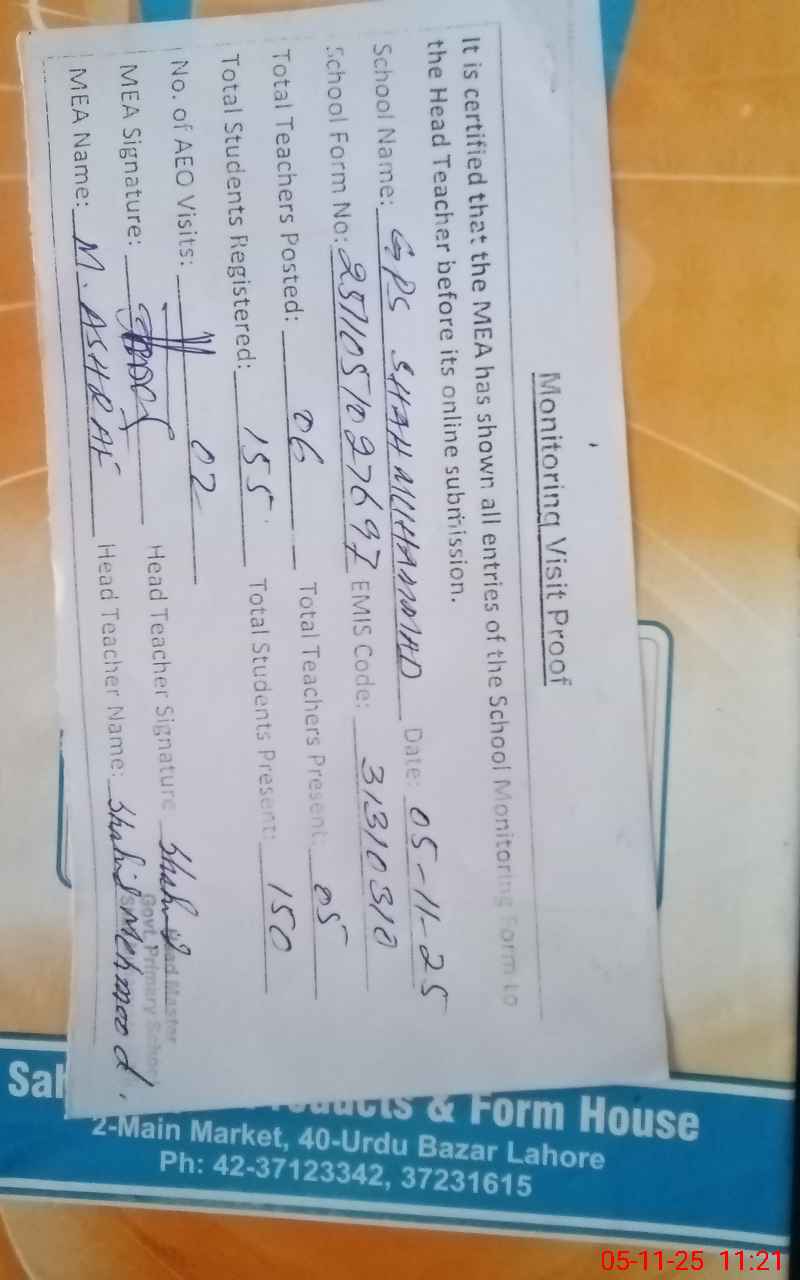 Monitoring Visit Proof
It is certified that the MEA has shown all entries of the School Monitoring Form to
the Head Teacher before its online submission.
School Name: GPS SHAH MUHAMMAD Date: 05-11-25
School Form No: 2571051027697 EMIS Code: 31310310
Total Teachers Posted: 06 Total Teachers Present: 05
Total Students Registered: 155 Total Students Present: 150
No. of AEO Visits: 02
MEA Signature: Head Teacher Signature Shahid
MEA Name: M. ASHRAF Head Teacher Name: Shahid Mehmood.
Head Master
Govt. Primary School
Sal
& Form House
2-Main Market, 40-Urdu Bazar Lahore
Ph: 42-37123342, 37231615
05-11-25 11:21